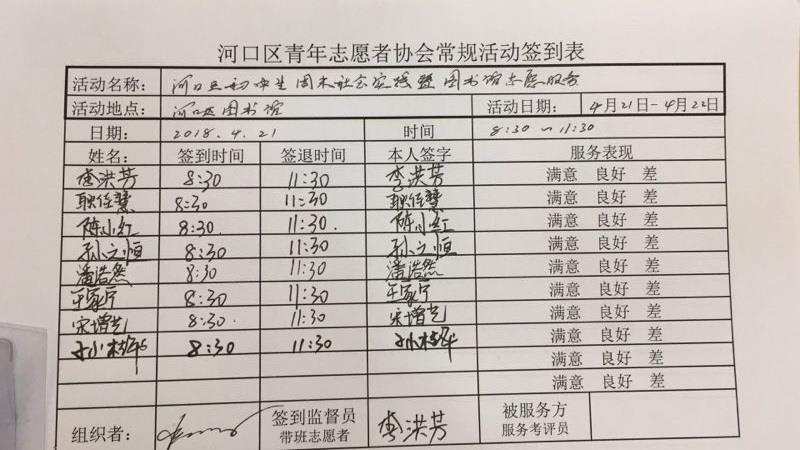 河口区青年志愿者协会常规活动签到表
活动名称: 河口区初中生周末社会实践暨图书馆志愿服务
活动地点: 河口区图书馆 活动日期: 4月21日-4月22日
日期: 2018.4.21 时间 8:30~11:30
姓名: 签到时间 签退时间 本人签字 服务表现
李洪芳 8:30 11:30 李洪芳 满意 良好 差
职任慧 8:30 11:30 职任慧 满意 良好 差
陈小红 8:30. 11:30. 陈小红 满意 良好 差
孙之恒 8:30 11:30 孙之恒 满意 良好 差
潘浩然 8:30 11:30 潘浩然 满意 良好 差
王家宁 8:30 11:30 王家宁 满意 良好 差
宋增艺 8:30. 11:30 宋增艺 满意 良好 差
8:30 11:30 满意 良好 差
满意 良好 差
满意 良好 差
组织者: 签到监督员 李洪芳 被服务方
带班志愿者 服务考评员